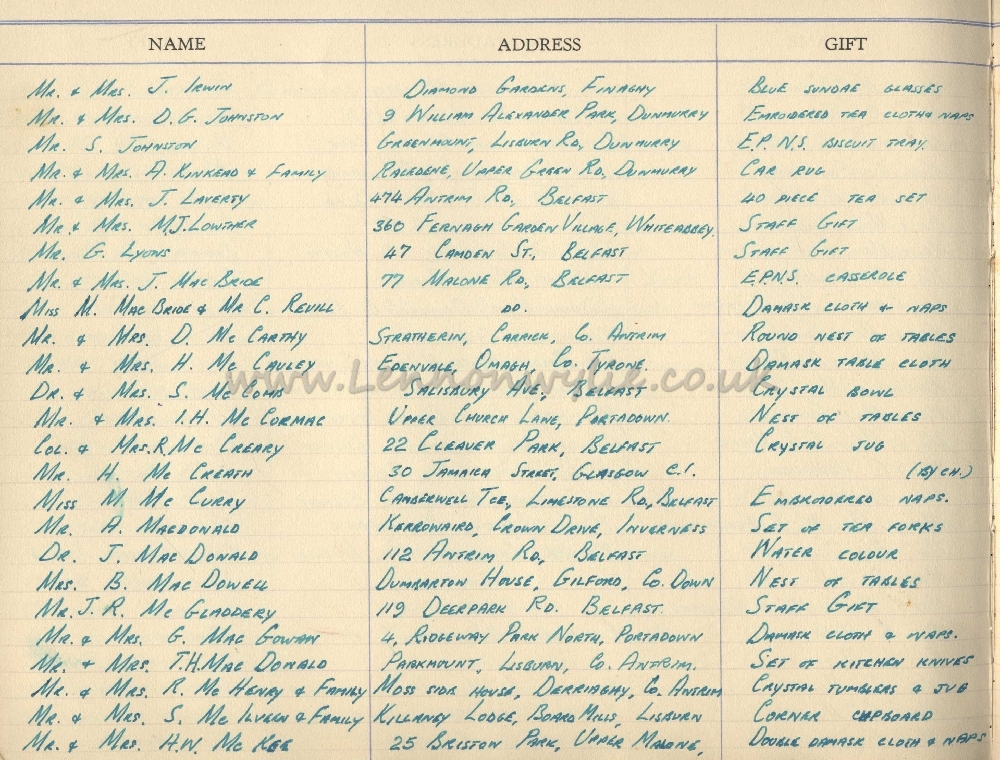 NAME ADDRESS GIFT
Mr. & Mrs. J. Irwin Diamond Gardens, Finaghy Blue sundae glasses
Mr. & Mrs. D.G. Johnston 9 William Alexander Park, Dunmurry Emroidered tea cloth & naps
Mr. S. Johnston Greenmount, Lisburn Rd, Dunmurry E.P.N.S. biscuit tray.
Mr. & Mrs. A. Kinkead & Family Raledene, Upper Green Rd, Dunmurry Car rug
Mr. & Mrs. J. Laverty 474 Antrim Rd, Belfast 40 piece tea set
Mr. & Mrs. M.J. Lowther 360 Fernagh Garden Village, Whiteabbey. Staff Gift
Mr. G. Lyons 47 Camden St., Belfast Staff Gift
Mr. & Mrs. J. MacBride 77 Malone Rd, Belfast E.P.N.S. casserole
Miss M. MacBride & Mr C. Revill do. Damask cloth & naps
Mr. & Mrs. D. McCarthy Stratherin, Carrick, Co. Antrim Round nest of tables
Mr. & Mrs. H. McCauley Edenvale, Omagh, Co. Tyrone. Damask table cloth
Dr. & Mrs. S. McComb Salisbury Ave., Belfast Crystal bowl
www.Lennonwylie.co.uk
Mr. & Mrs. I.H. McCormac Upper Church Lane, Portadown. Nest of tables
Col. & Mrs. R. McCreary 22 Cleaver Park, Belfast Crystal jug
Mr. H. McCreath 30 Jamaica Street, Glasgow C.1. (By ch.)
Miss M. McCurry Camberwell Tce., Limestone Rd., Belfast Embroidered naps.
Mr. A. Macdonald Kerrowaird, Crown Drive, Inverness Set of tea forks
Dr. J. MacDonald 112 Antrim Rd, Belfast Water colour
Mrs. B. MacDowell Dumbarton House, Gilford, Co. Down Nest of tables
Mr. J. R. McGladdery 119 Deerpark Rd. Belfast. Staff Gift
Mr. & Mrs. G. MacGowan 4, Ridgeway Park North, Portadown Damask cloth & naps.
Mr. & Mrs. T.H. MacDonald Parkmount, Lisburn, Co. Antrim. Set of kitchen knives
Mr. & Mrs. R. McHenry & Family Moss side House, Derriaghy, Co. Antrim Crystal tumblers & jug
Mr. & Mrs. S. McIlveen & Family Killaney Lodge, Board Mills, Lisburn Corner cupboard
Mr. & Mrs. H.W. McKee 25 Briston Park, Upper Malone, Double damask cloth & naps